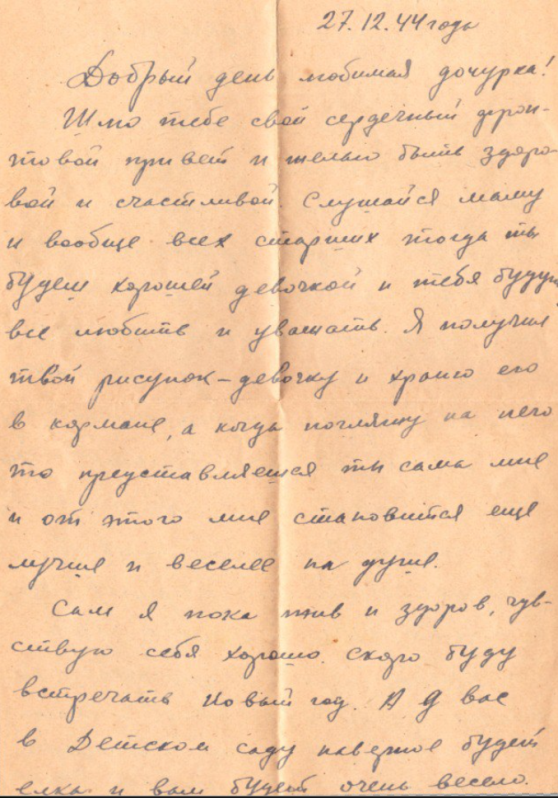 27.12.44 года
Добрый день любимая дочурка!
Шлю тебе свой сердечный фрон-
товой привет и желаю быть здоро-
вой и счастливой. Слушайся маму
и вообще всех старших тогда ты
будеш хорошей девочкой и тебя будут
все любить и уважать. Я получил
твой рисунок-девочку и храню его
в кармане, а когда погляжу на него
то представляешся ты сама мне
и от этого мне становится еще
лучше и веселее на душе.
Сам я пока жив и здоров, чув-
ствую себя хорошо скоро буду
встречать Новый год. А у вас
в Детском саду наверное будет
елка и вам будет очень весело.